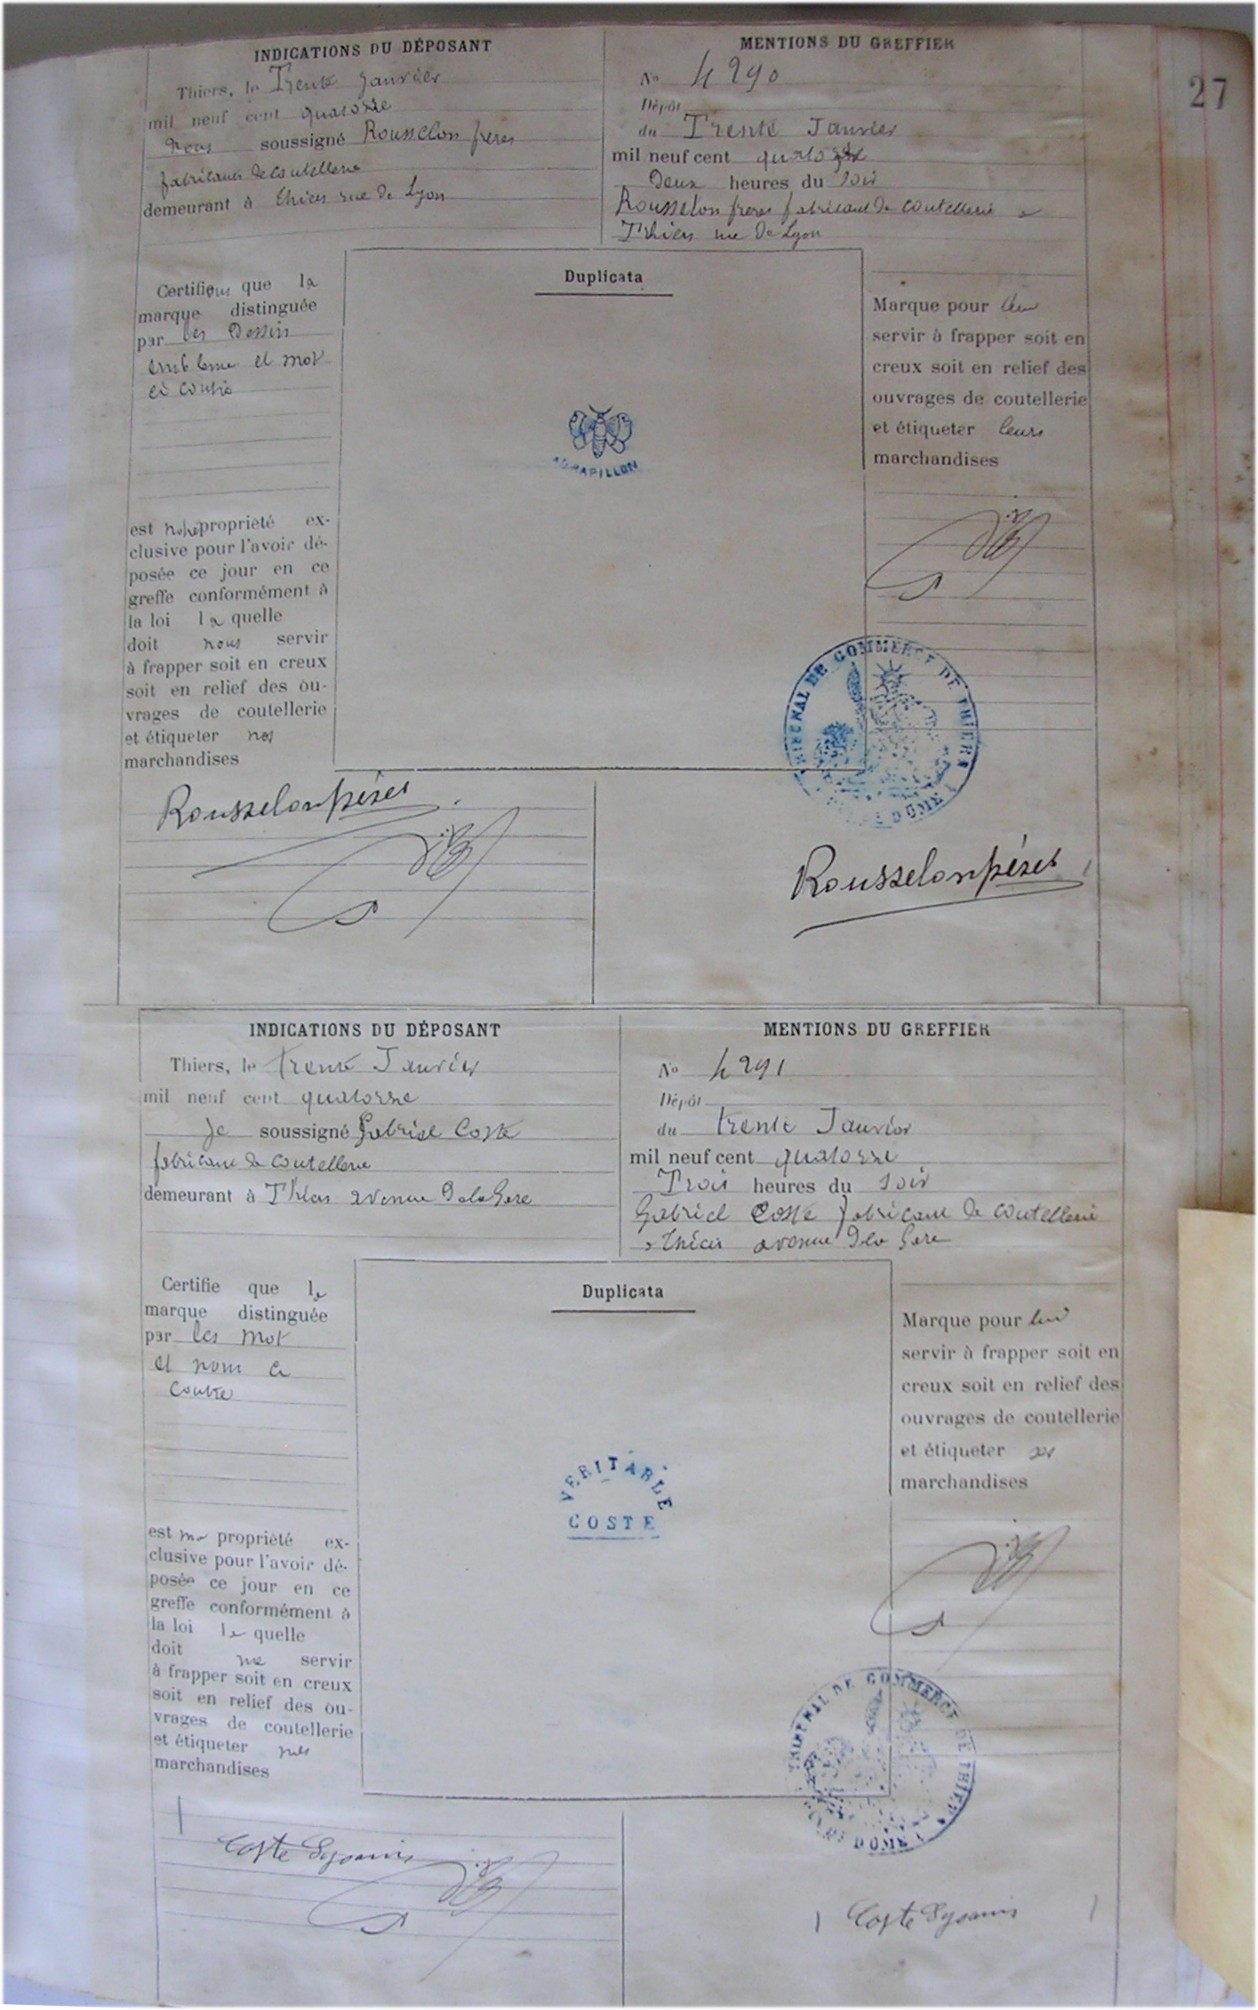 27
INDICATIONS DU DÉPOSANT
Thiers, le Trente Janvier
mil neuf cent quatorze
nous soussigné Rousselon freres
fabricants de coutellerie
demeurant à Thiers rue de Lyon
MENTIONS DU GREFFIER
No 4290
Dépôt
du Trente Janvier
mil neuf cent quatorze
Deux heures du soir
Rousselon freres fabricant de coutellerie a
Thiers rue de Lyon
Certifions que la
marque distinguée
par les Dessin
embleme et mot
ci contre
est notre propriété ex-
clusive pour l'avoir dé-
posée ce jour en ce
greffe conformément à
la loi la quelle
doit nous servir
à frapper soit en creux
soit en relief des ou-
vrages de coutellerie
et étiqueter nos
marchandises
Rousselon frères
Duplicata
AU PAPILLON
Marque pour leur
servir à frapper soit en
creux soit en relief des
ouvrages de coutellerie
et étiqueter leurs
marchandises
TRIBUNAL DE COMMERCE DE THIERS
DOME
Rousselon frères
INDICATIONS DU DÉPOSANT
Thiers, le trente Janvier
mil neuf cent quatorze
Je soussigné Gabriel Coste
fabricant de coutellerie
demeurant à Thiers avenue de la Gare
MENTIONS DU GREFFIER
No 4291
Dépôt
du trente Janvier
mil neuf cent quatorze
Trois heures du soir
Gabriel Coste fabricant de coutellerie
a Thiers avenue de la Gare
Certifie que la
marque distinguée
par les mot
et nom ci
contre
est ma propriété ex-
clusive pour l'avoir dé-
posée ce jour en ce
greffe conformément à
la loi la quelle
doit me servir
à frapper soit en creux
soit en relief des ou-
vrages de coutellerie
et étiqueter mes
marchandises
Coste
Duplicata
VERITABLE
COSTE
Marque pour lui
servir à frapper soit en
creux soit en relief des
ouvrages de coutellerie
et étiqueter ses
marchandises
TRIBUNAL DE COMMERCE DE THIERS
DOME
Coste